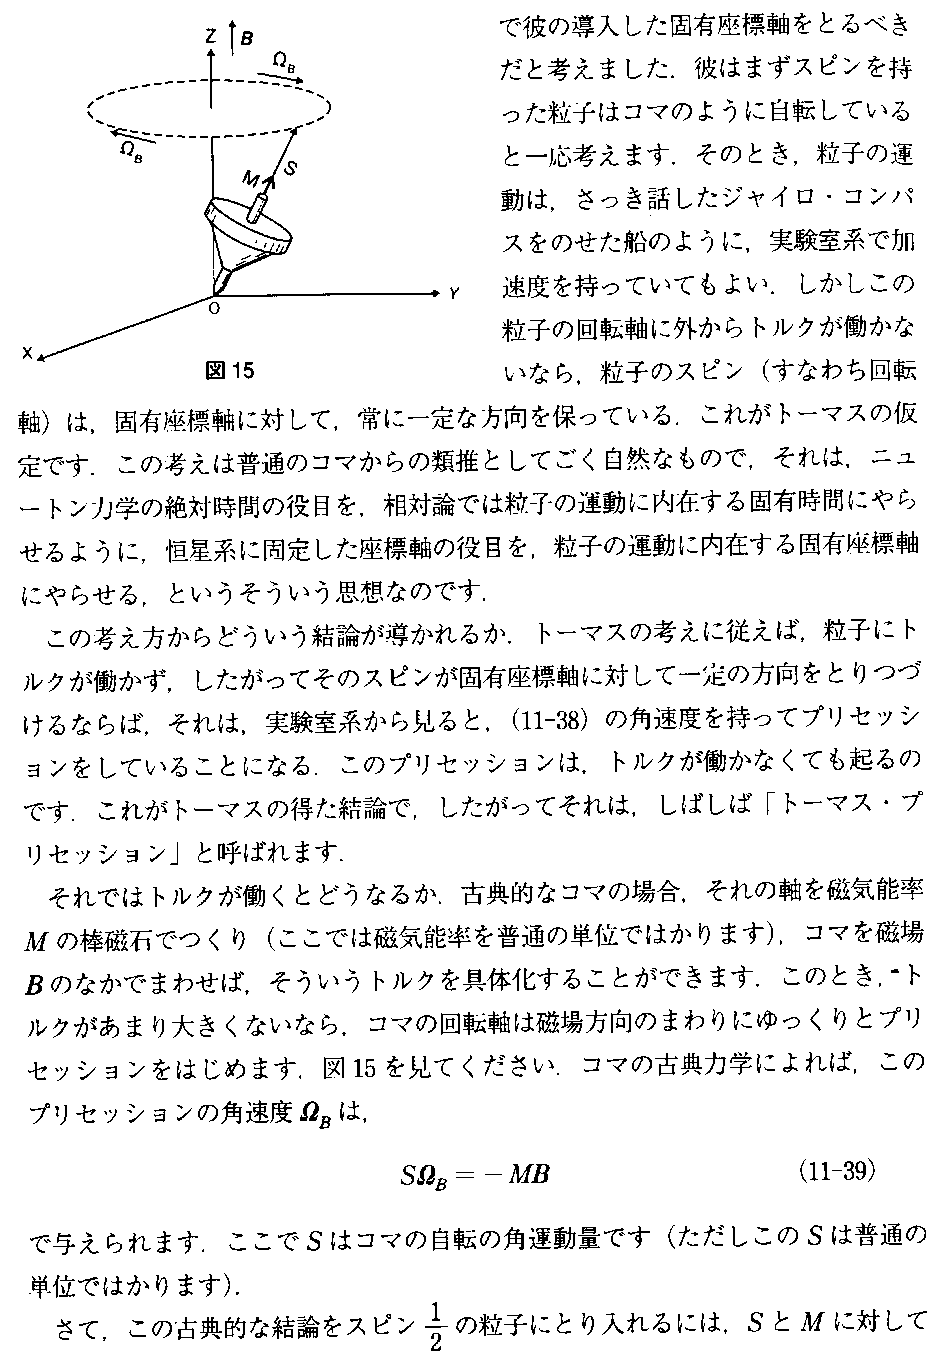 Z
B
Ω_B
Ω_B
M
S
Y
O
X
図 15
で彼の導入した固有座標軸をとるべき
だと考えました．彼はまずスピンを持
った粒子はコマのように自転している
と一応考えます．そのとき，粒子の運
動は，さっき話したジャイロ・コンパ
スをのせた船のように，実験室系で加
速度を持っていてもよい．しかしこの
粒子の回転軸に外からトルクが働かな
いなら，粒子のスピン（すなわち回転
軸）は，固有座標軸に対して，常に一定な方向を保っている．これがトーマスの仮
定です．この考えは普通のコマからの類推としてごく自然なもので，それは，ニュ
ートン力学の絶対時間の役目を，相対論では粒子の運動に内在する固有時間にやら
せるように，恒星系に固定した座標軸の役目を，粒子の運動に内在する固有座標軸
にやらせる，というそういう思想なのです．
この考え方からどういう結論が導かれるか．トーマスの考えに従えば，粒子にト
ルクが働かず，したがってそのスピンが固有座標軸に対して一定の方向をとりつづ
けるならば，それは，実験室系から見ると，(11-38) の角速度を持ってプリセッシ
ョンをしていることになる．このプリセッションは，トルクが働かなくても起るの
です．これがトーマスの得た結論で，したがってそれは，しばしば「トーマス・プ
リセッション」と呼ばれます．
それではトルクが働くとどうなるか．古典的なコマの場合，それの軸を磁気能率
M の棒磁石でつくり（ここでは磁気能率を普通の単位ではかります），コマを磁場
B のなかでまわせば，そういうトルクを具体化することができます．このとき，ト
ルクがあまり大きくないなら，コマの回転軸は磁場方向のまわりにゆっくりとプリ
セッションをはじめます．図 15 を見てください．コマの古典力学によれば，この
プリセッションの角速度 Ω_B は，
SΩ_B = − MB (11-39)
で与えられます．ここで S はコマの自転の角運動量です（ただしこの S は普通の
単位ではかります）．
さて，この古典的な結論をスピン 1/2 の粒子にとり入れるには，S と M に対して